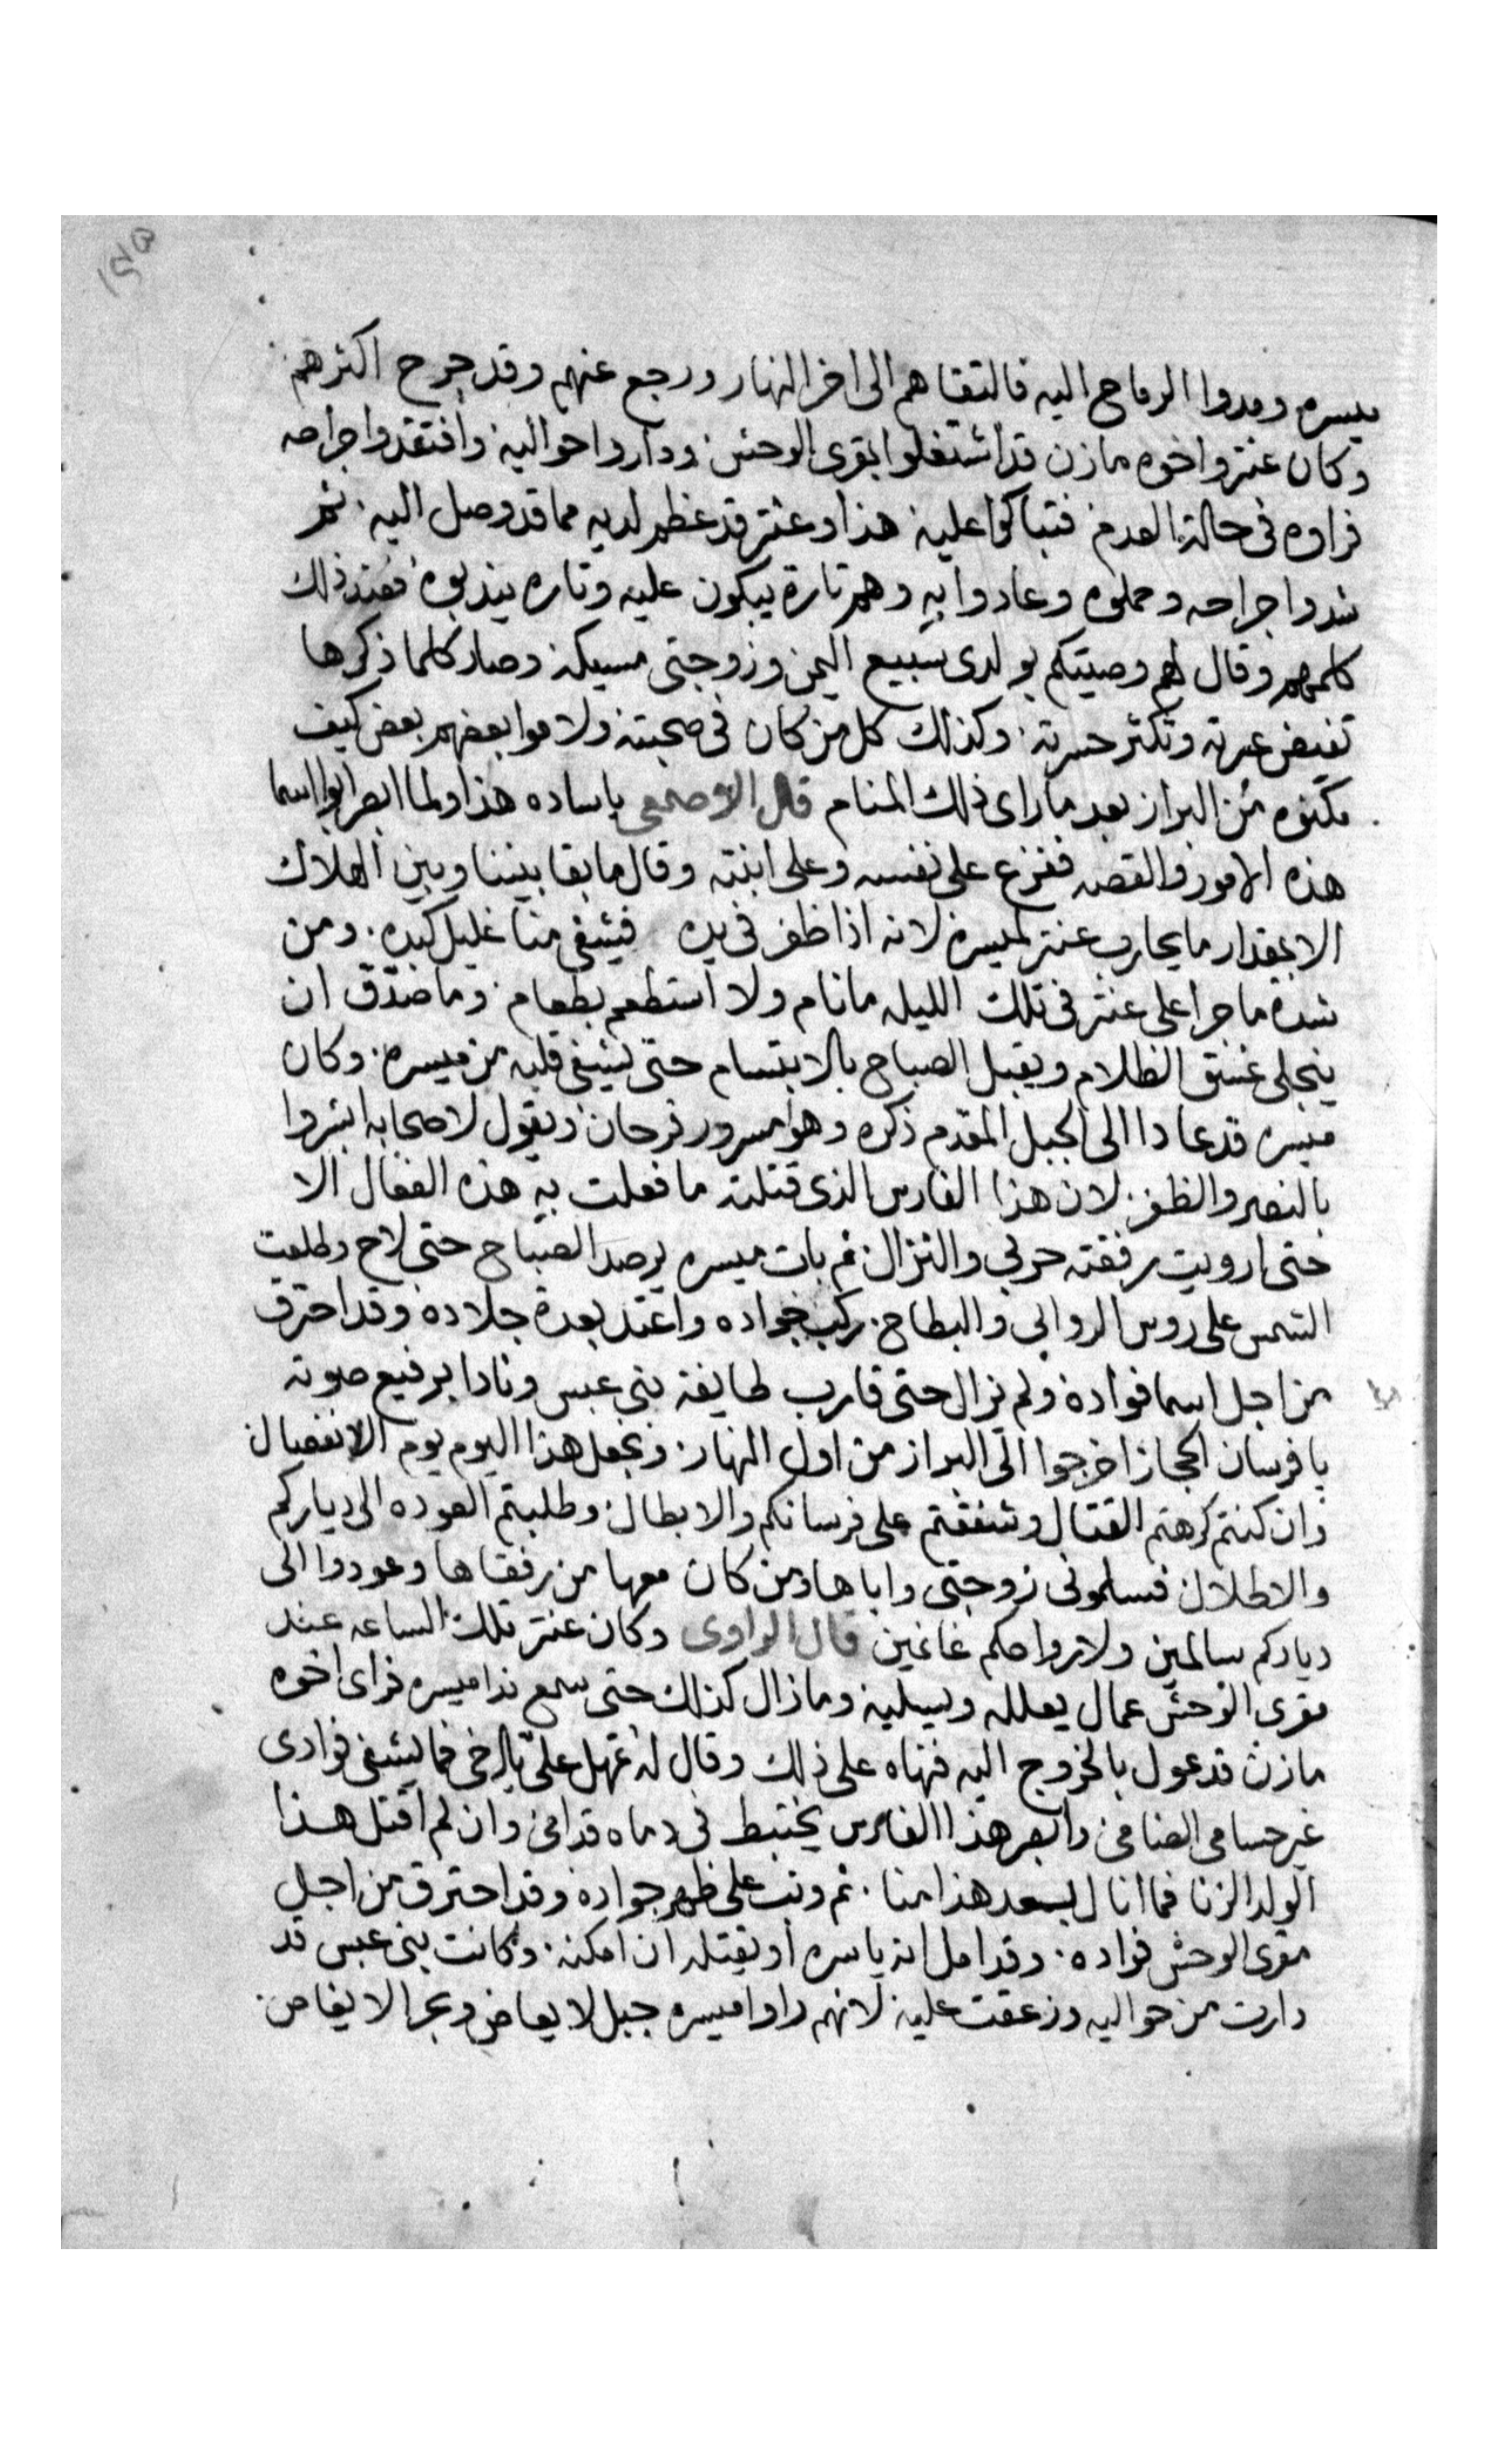 ميسره ومدوا الرماح اليه فالتقاهم الى اخر النهار ورجع عنهم وقد جرح اكثرهم
وكان عنتر واخوه مازن قد اشتغلوا بمقرى الوحش ودارو احواليه وافتقدوا جراحه
فراوه فى حالة العدم فتباكوا عليه هذا وعنتر قد عظم لديه مما قد وصل اليه ثم
شدوا جراحه وحملوه وعادوا به وهم تارة يبكون عليه وتاره يندبوه فعند ذلك
كلمهم وقال لهم وصيتكم بولدى سبيع اليمن وزوجتى مسيكه وصار كلما ذكرها
تفيض عبرته وتكثر حسرته وكذلك كل من كان فى صحبته ولاموا بعضهم بعض كيف
مكنوه من البراز بعد ما راى ذلك المنام قال الاصمعى ياساده هذا ولما ابصر ابوا اسما
هذه الامور والقصه ففزع على نفسه وعلى ابنته وقال ما بقا بيننا وبين الهلاك
الا بمقدار ما يحارب عنتر لميسرة لانه اذا ظفر فى يده فيشفى منا غليل كبده ومن
شدة ما جرا على عنتر فى تلك الليله ما نام ولا استطعم بطعام وما صدق ان
ينجلى غسق الظلام ويقبل الصباح بالابتسام حتى يشفى قلبه من ميسره وكان
ميسره قد عادا الى الجبل المقدم ذكره وهو مسرور فرحان ويقول لاصحابه ابشروا
بالنصر والظفر لان هذا الفارس الذى قتلته ما فعلت به هذه الفعال الا
حتى ارويت رفقته حربى والنزال ثم بات ميسره يرصد الصباح حتى لاح وطلعت
الشمس على روس الروابى والبطاح ركب جواده واعتد بعدة جلاده وقد احترق
من اجل اسما فواده ولم يزال حتى قارب طايفة بنى عبس ونادا برفيع صوته
يا فرسان الحجاز اخرجوا الى البراز من اول النهار ونجعل هذا اليوم يوم الانفصال
وان كنتم كرهتم القتال وشفقتم على فرسانكم والابطال وطلبتم العوده الى دياركم
والاطلال فسلمونى زوجتى واباها ومن كان معها من رفقاها وعودوا الى
دياركم سالمين ولارواحكم غانمين قال الراوى وكان عنتر تلك الساعه عند
مقرى الوحش عمال يعلله ويسليه وما زال كذلك حتى سمع ندا ميسره فراى اخوه
مازن قد عول بالخروج اليه فنهاه على ذلك وقال له تمهل على يا اخى فما يشفى فوادى
غير حسامى الضامى وابصر هذا الفارس يختبط فى دماه قدامى وان لم اقتل هذا
الولد الزنا فما انال بعد هذا منا ثم وثب على ظهر جواده وقد احترق من اجل
مقرى الوحش فواده وقد امل انه ياسره او يقتله ان امكنه وكانت بنى عبس قد
دارت من حواليه وزعقت عليه لانهم راوا ميسره جبل لا يعاض وبحر الا يغاض